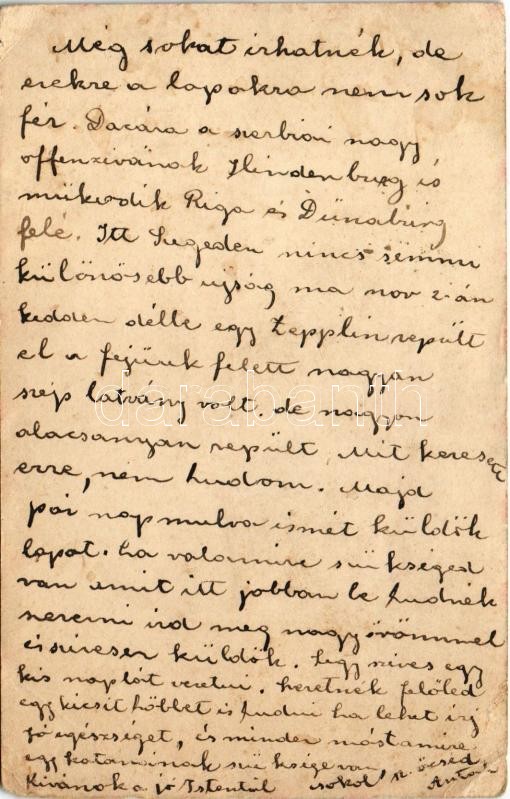 Még sokat irhatnék, de
ezekre a lapokra nem sok
fér. Dacára a szerbiai nagy
offenzivának Hindenburg is
müködik Riga és Dünaburg
felé. Itt Szegeden nincs semmi
különösebb ujság ma nov 2-án
kedden délle egy Zepplin repült
el a fejünk felett nagyan
szép latvány volt. de nagyon
alacsanyan repült, Mit keresett
erre, nem tudom. Majd
pár nap mulva ismét küldök
lapot. ha valamire szükséged
van amit itt jobban be tudnék
szerezni ird meg nagy örömmel
és szivesen küldök. Légy szives egy
kis naplót vezetni. szeretnék felőled
egy kicsit többet is tudni ha lehet irj
jó egészséget, és minden mást amire
egy katonának szüksége van
Kivánok a jó Istentül sokol öcséd
Antal
darabanth